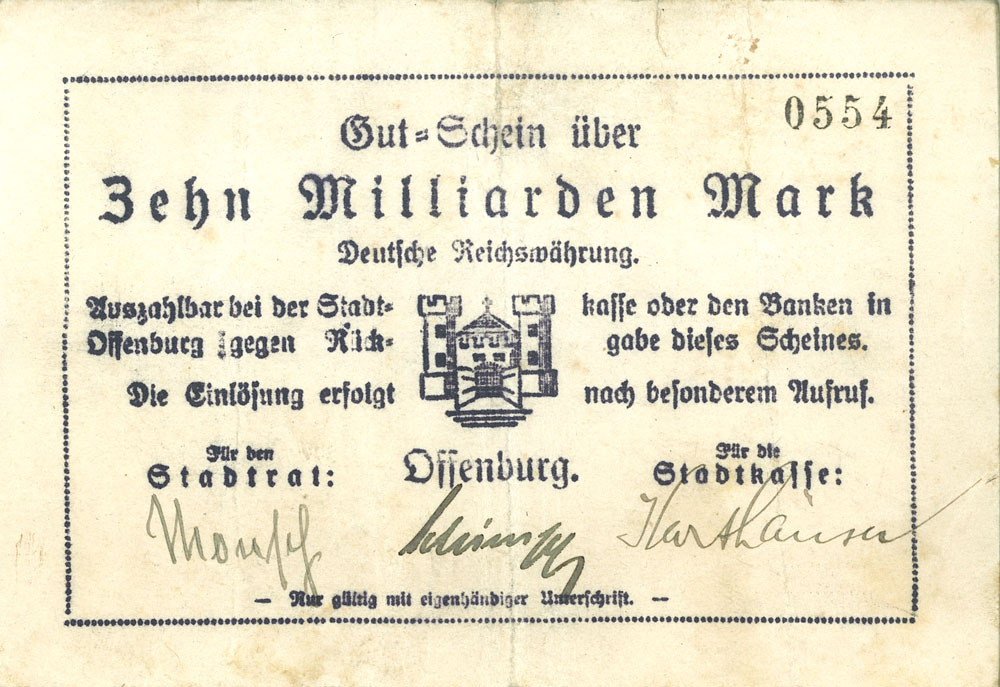 0554
Gut=Schein über
Zehn Milliarden Mark
Deutsche Reichswährung.
Auszahlbar bei der Stadt= kasse oder den Banken in
Offenburg gegen Rück= gabe dieses Scheines.
Die Einlösung erfolgt nach besonderem Aufruf.
Für den Für die
Stadtrat: Offenburg. Stadtkasse:
— Nur gültig mit eigenhändiger Unterschrift. —